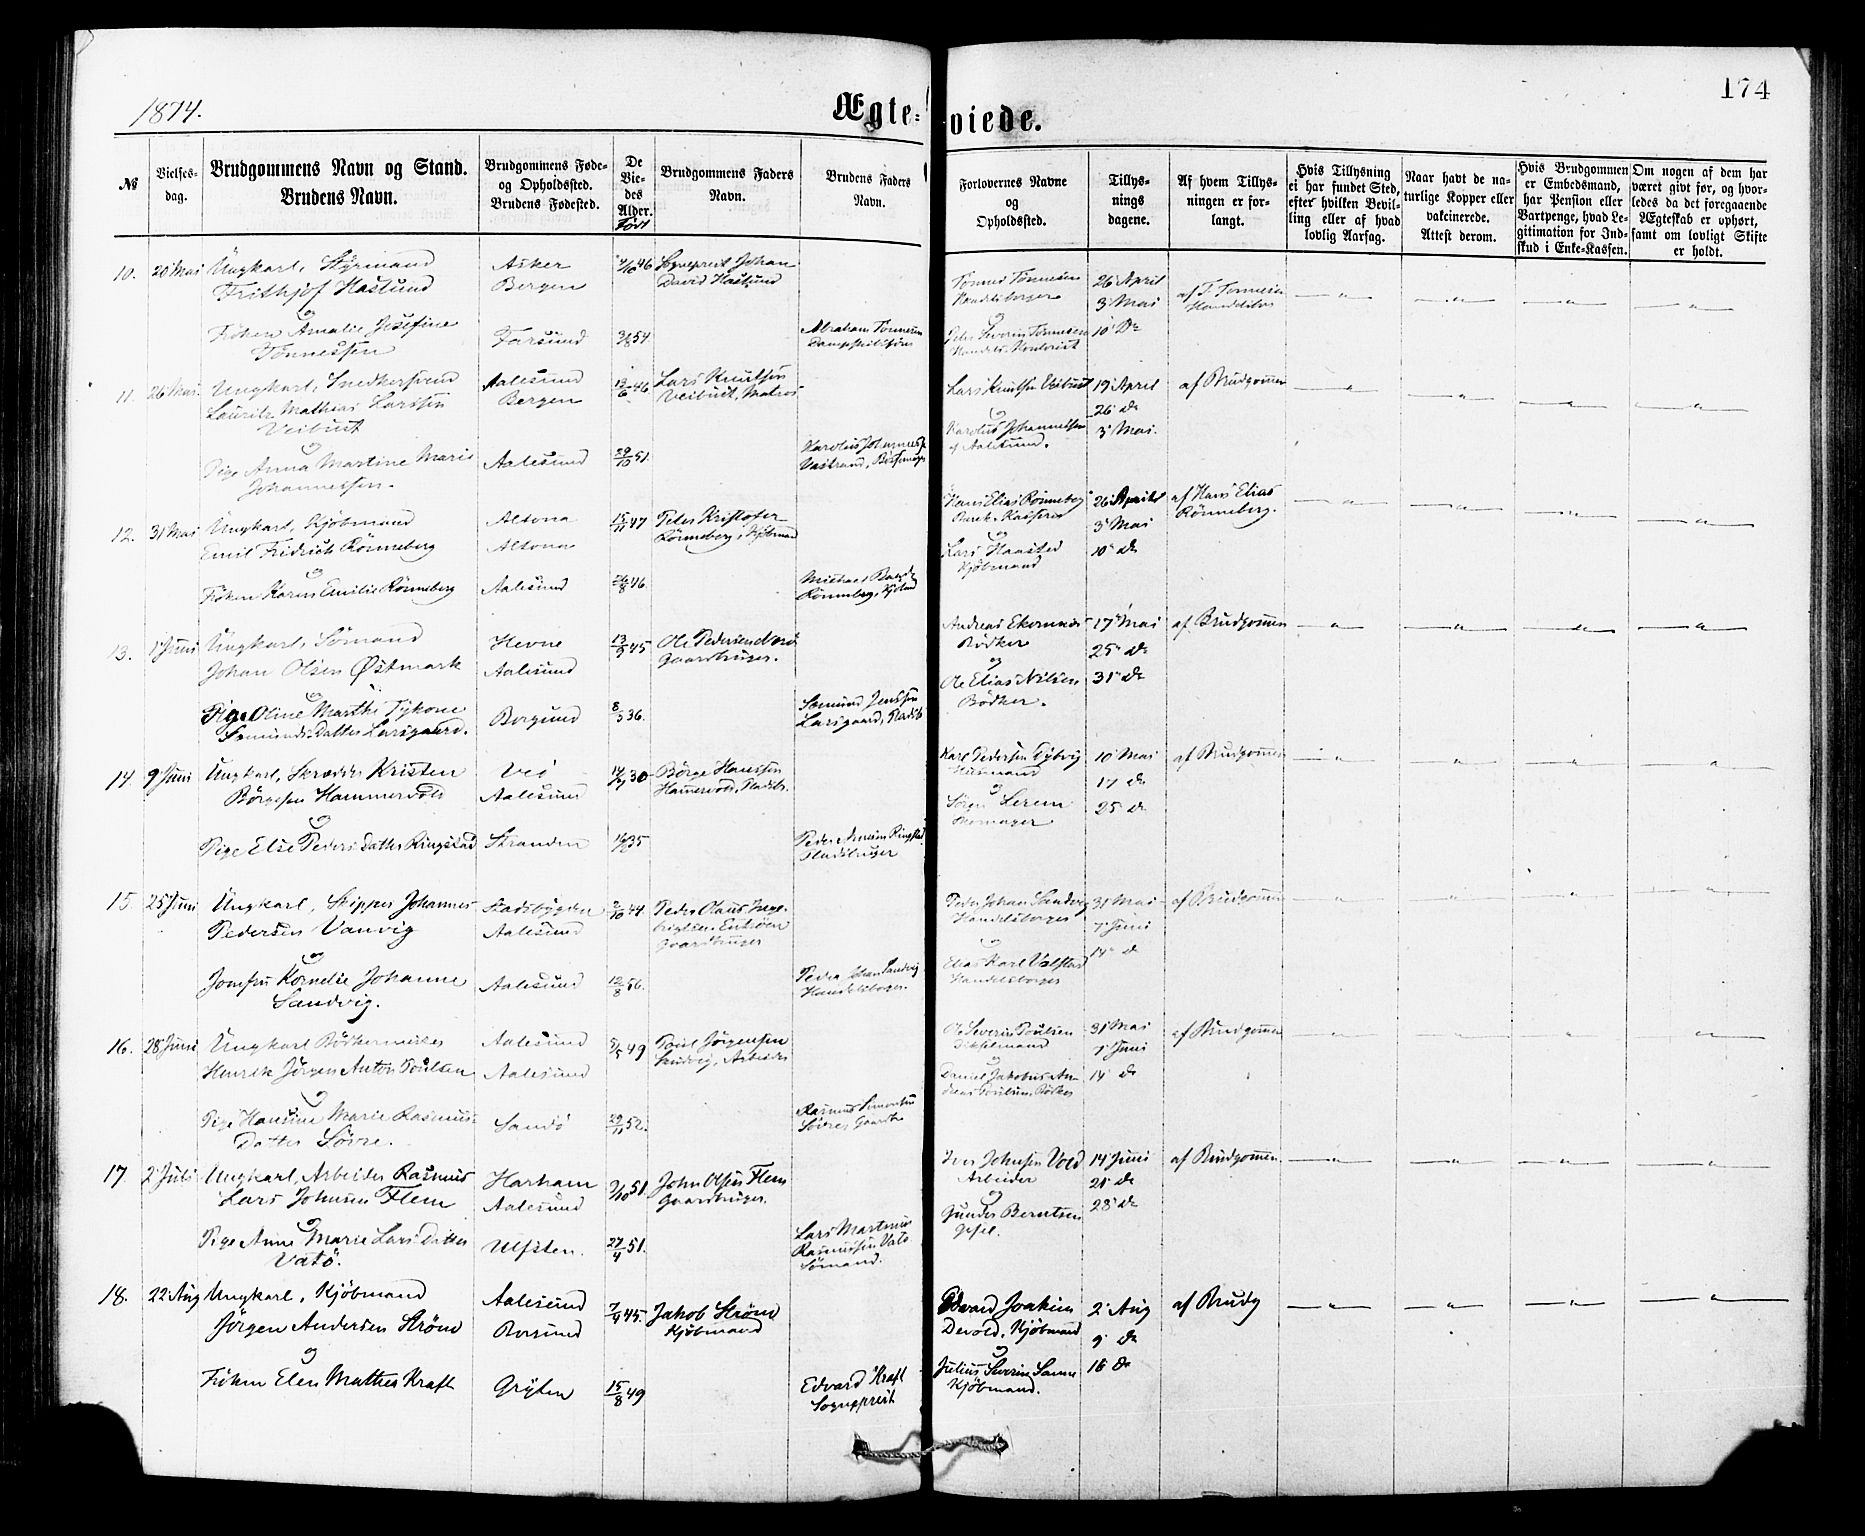 1874.
Ægte-
viede.
174
№
Vielses-
dag.
Brudgommens Navn og Stand.
Brudens Navn.
Brudgommens Føde-
og Opholdssted.
Brudens Fødested.
De
Vie-
des
Alder.
Født
Brudgommens Faders
Navn.
Brudens Faders
Navn.
Forlovernes Navne
og
Opholdssted.
Tillys-
nings
dagene.
Af hvem Tillys-
ningen er for-
langt.
Hvis Tillysning
ei har fundet Sted,
efter hvilken Bevil-
ling eller af hvad
lovlig Aarsag.
Naar havt de na-
turlige Kopper eller
vakcinerede.
Attest derom.
Hvis Brudgommen
er Embedsmand,
har Pension eller
Vartpenge, hvad Le-
gitimation for Ind-
skud i Enke-Kassen.
Om nogen af dem har
været givt før, og hvor-
ledes da det foregaaende
Ægteskab er ophørt,
samt om lovligt Skifte
er holdt.
10. 20 Mai Ungkarl, Styrmand
Frithjof Haslund
og
Frøken Amalie Josefine
Tønnessen
Asker
Bergen
Farsund
46
54
Sogneprest Johan
David Haslund
Abraham Tønnesen
Tønnes Tønnesen
Handelsborger
og
Severin Tønnesen
26 April
3 Mai
10 Do
af T. Tønnesen
11. 26 Mai Ungkarl, Snedkersvend
Lauritz Mathias Larssen
Veibust
og
Pige Anna Martine Marie
Johannessen.
Aalesund
Bergen
Aalesund
13/6 46
29/10 51.
Lars Knutsen
Veibust, Matros
Karolus Johannessen
Lars Knutsen Veibust
og
Karolus Johannessen
af Aalesund.
19 April
26 do
3 Mai.
af Brudgommen
12. 31 Mai Ungkarl, Kjøbmand
Emil Fridrich Rønneberg
og
Frøken Karen Emilie Rønneberg
Altona
Altona
Aalesund
15/11 47
26/8 46.
Peter Kristofer
Rønneberg, Kjøbmand
Michael
Rønneberg, Kjøbmd
Hans Elias Rønneberg
Kasserer
og
Lars Haasted
Kjøbmand
26 April
3 Mai
10 do
af Hans Elias
Rønneberg.
13. 1 Juni Ungkarl, Sømand
Johan Olsen Østmark
og
Pige Oline Marthe Tykone
Semunds Datter Larsgaard.
Hevne
Aalesund
Borgund
45
8/3 36.
Ole Pedersen
Gaardbruger.
Semund Jenssen
Larsgaard, Pladsb.
Andreas Ekornnes
Bødker
og
Ole Elias Nilsen
Bødker.
17 Mai
25 do
31 do
af Brudgommen
14. 9 Juni Ungkarl, Skrædder Kristen
Børgesen Hammervold
og
Pige Else Peders Datter Ringstad
Vei
Aalesund
Stranden
30
35
Børge Hanssen
Hamervold, Pladsbr.
Peder Ringstad
Pladsbruger
Karl Pedersen
Husmand
og
Søren
Skomager
10 Mai
17 do
25 do
af Brudgommen
15. 25 Juni Ungkarl, Skipper Johannes
Pedersen Vanvig
og
Jomfru Kornelie Johanne
Sandvig.
Stadsbygden
Aalesund
Aalesund
2/10 44.
12/8 56.
Peder Olaus Inge-
brigtsen
Gaardbruger
Peder Johan Sandvig
Handelsborger.
Peder Johan Sandvig
Handelsborger
og
Elias Karl Valstad
Handelsborger
31 Mai
7 Juni
14 do
af Brudgommen
16. 28 Juni Ungkarl Bødkermester
Henrik Jørgen Anton Poulsen
og
Pige Hansine Marie Rasmus-
Datter Søvre.
Aalesund
Aalesund
Sandø
49
29/11 52.
Poul Jørgensen
Arbeider
Rasmus Simonsen
Søvre, Gaardbr.
Ole Severin Poulsen
og
Daniel Jakobus An-
dreas Poulsen, Bødker
31 Mai
7 Juni
14 do
af Brudgommen
17. 2 Juli Ungkarl, Arbeider Rasmus
Lars Johnsen Flem
og
Pige Anne Marie Lars Datter
Vatø.
Harham
Aalesund
Ulfsten.
51.
27/4 51.
John Olsen Flem
Gaardbruger.
Lars Martinus
Rasmussen Vatø
Sømand.
Iver Johnsen Vold
Arbeider
og
Gunder Berntsen
14 Juni
21 do
28 do
af Brudgommen.
18. 22 Aug Ungkarl, Kjøbmand
Jørgen Andersen Strøm
og
Frøken Elen Mathea Kraft
Aalesund
Borgund
Grytten
7/9 45.
15/8 49
Jakob Strøm
Kjøbmand
Edvard Kraft
Sogneprest
Edvard Joakim
Devold, Kjøbmand
og
Julius Severin Sanne
Kjøbmand.
2 Aug
9 do
16 do
af Brudg